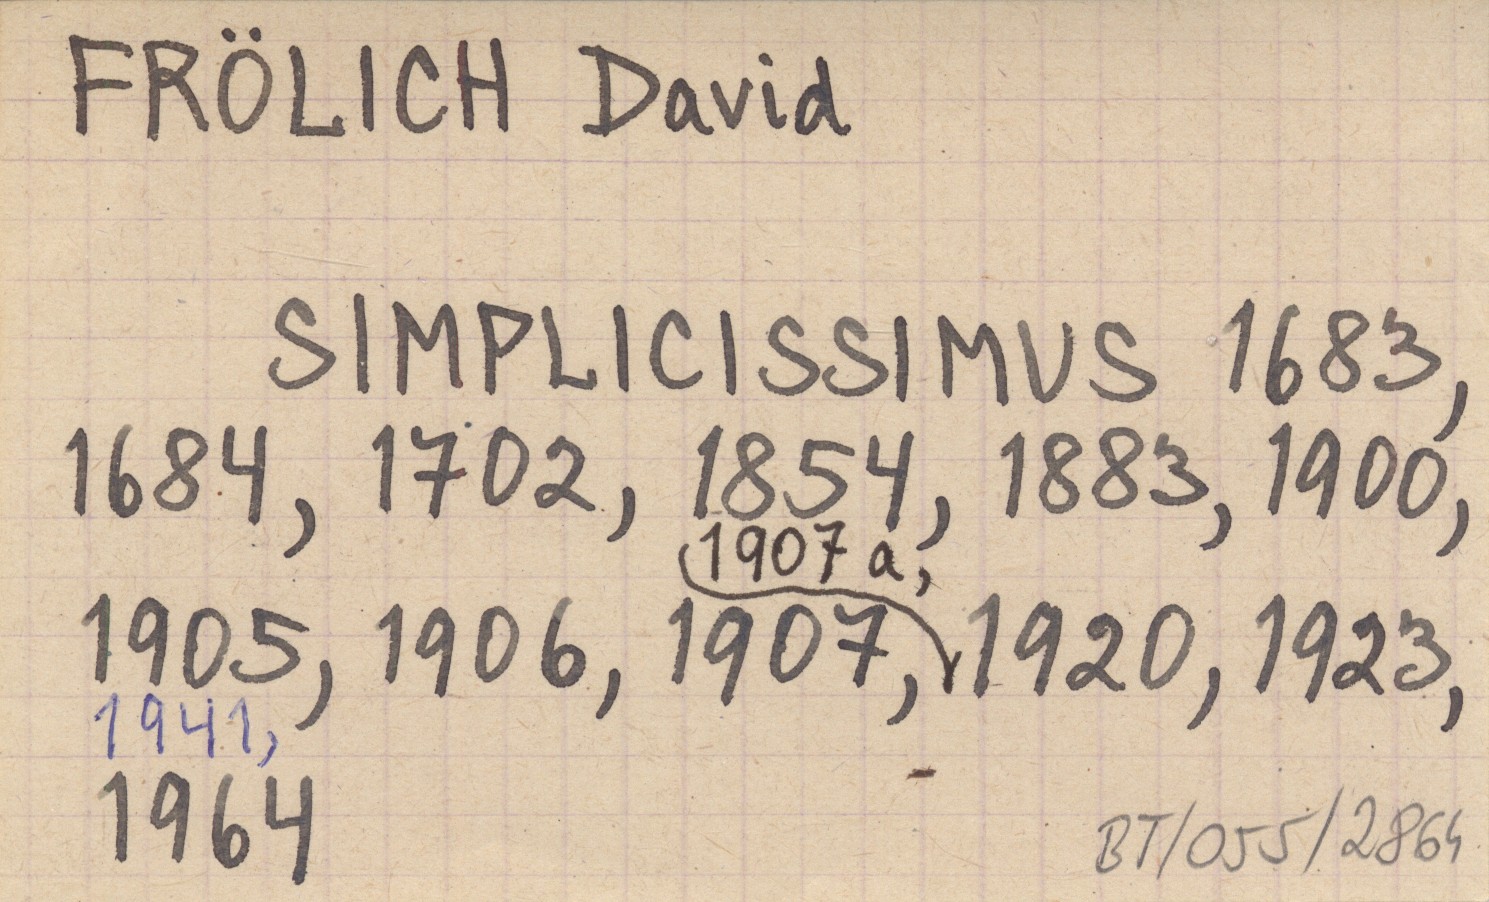 FRÖLICH David
SIMPLICISSIMUS 1683,
1684, 1702, 1854, 1883, 1900,
1907a,
1905, 1906, 1907, 1920, 1923,
1941,
1964
BT/055/2864